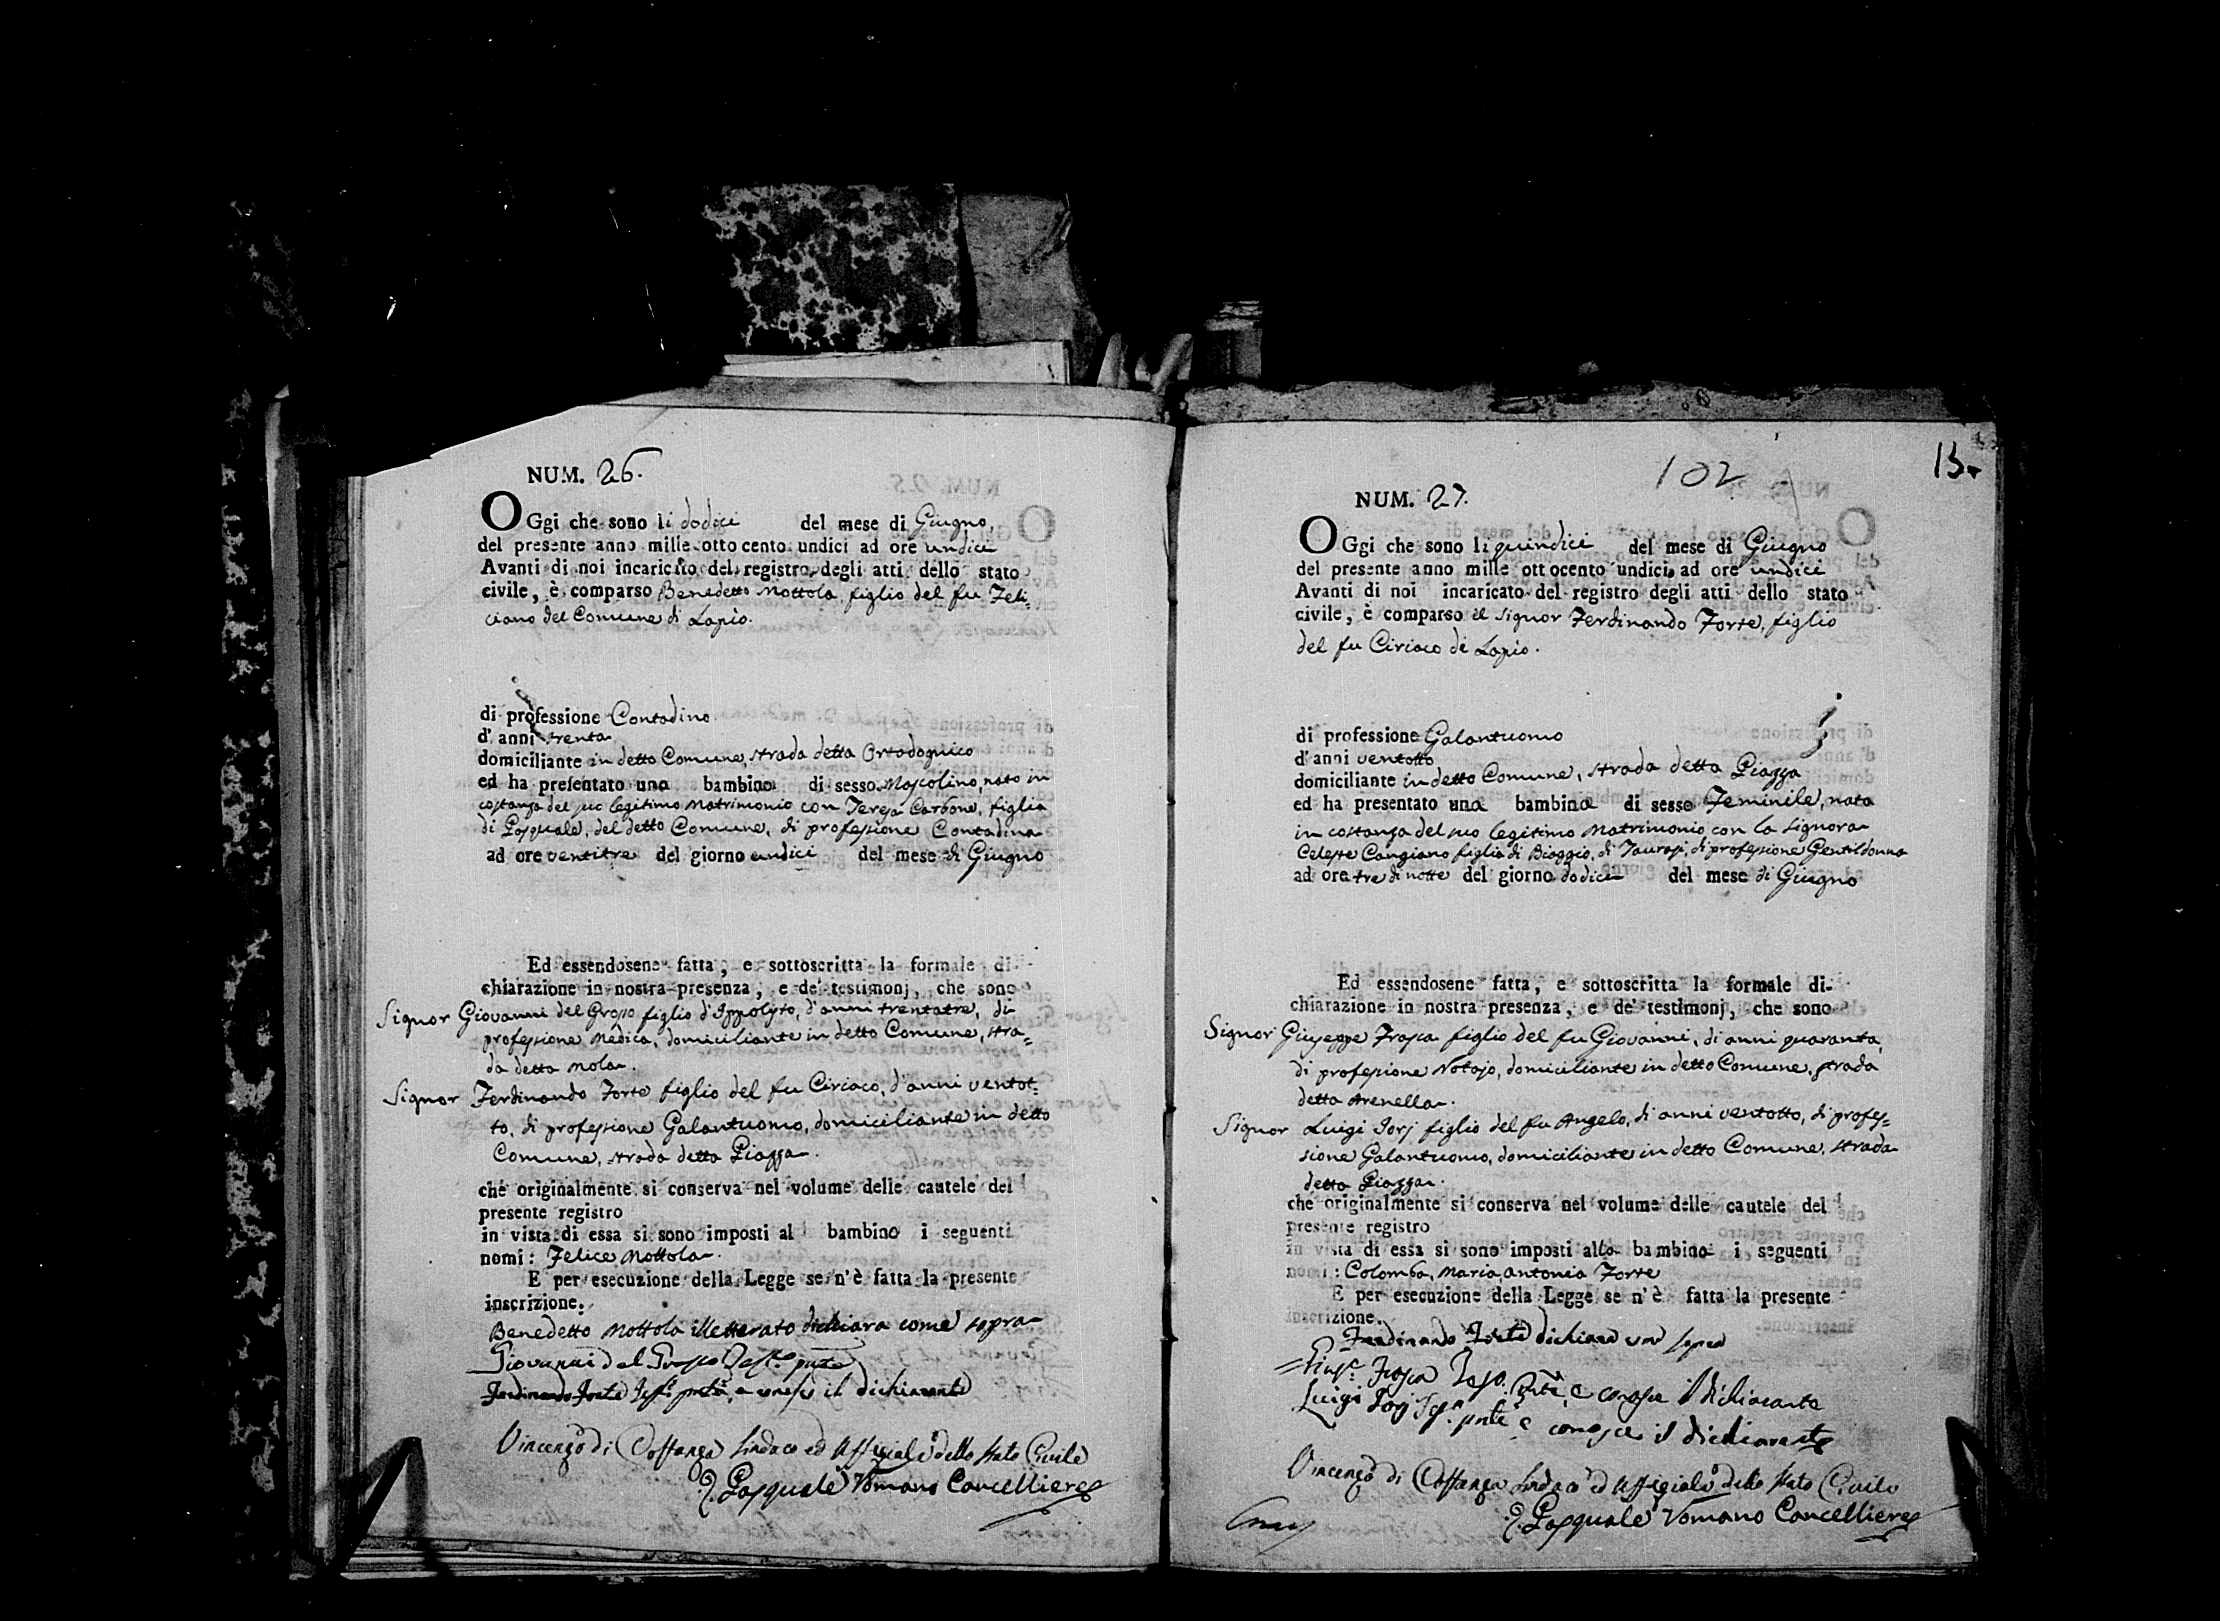 NUM. 26.
OGgi che sono li dodici del mese di Giugno,
del presente anno mille ottocento undici ad ore undici
Avanti di noi incaricato del registro degli atti dello stato
civile, è comparso Benedetto Mottola figlio del fu Feli-
ciano del Comune di Lapio.
di professione Contadino
d'anni trenta
domiciliante in detto Comune, strada detta Ortodomico
ed ha presentato una bambino di sesso Mascolino, nato in
costanza del suo legitimo Matrimonio con Teresa Carbone, figlia
di Pasquale, del detto Comune, di professione Contadina
ad ore ventitre del giorno undici del mese di Giugno
Ed essendosene fatta, e sottoscritta la formale di-
chiarazione in nostra presenza, e de' testimonj, che sono
Signor Giovanni del Grosso figlio d'Ippolito, d'anni trentatre, di
professione Medico, domiciliante in detto Comune, stra-
da detta Mola.
Signor Ferdinando Forte figlio del fu Ciriaco, d'anni ventot-
to, di professione Galantuomo, domiciliante in detto
Comune, strada detta Piazza.
che originalmente si conserva nel volume delle cautele del
presente registro
in vista di essa si sono imposti al bambino i seguenti
nomi: Felice Mottola.
E per esecuzione della Legge se n'è fatta la presente
inscrizione.
Benedetto Mottola illetterato dichiara come sopra
Giovanni del Grosso Test.o pnte
Ferdinando Forte Test.o pnte, e conosce il dichiarante
Vincenzo di Costanza Sindaco ed Uffiziale dello Stato Civile
Pasquale Romano Cancelliere
102
13
NUM. 27.
OGgi che sono li quindici del mese di Giugno
del presente anno mille ottocento undici ad ore undici
Avanti di noi incaricato del registro degli atti dello stato
civile, è comparso il Signor Ferdinando Forte, figlio
del fu Ciriaco di Lapio.
di professione Galantuomo
d'anni ventotto
domiciliante in detto Comune, strada detta Piazza
ed ha presentato una bambina di sesso Feminile, nata
in costanza del suo legitimo Matrimonio con la Signora
Celeste Cangiano figlia di Biaggio, di Taurasi, di professione Gentildonna
ad ore tre di notte del giorno dodici del mese di Giugno
Ed essendosene fatta, e sottoscritta la formale di-
chiarazione in nostra presenza, e de' testimonj, che sono
Signor Giuseppe Frasca figlio del fu Giovanni, di anni quaranta,
di professione Notajo, domiciliante in detto Comune, strada
detta Arenella.
Signor Luigi Iorj figlio del fu Angelo, di anni ventotto, di profes-
sione Galantuomo, domiciliante in detto Comune, strada
detta Piazza.
che originalmente si conserva nel volume delle cautele del
presente registro
in vista di essa si sono imposti alla bambina i seguenti
nomi: Colomba, Maria, Antonia Forte
E per esecuzione della Legge se n'è fatta la presente
inscrizione.
Ferdinando Forte dichiara come sopra
Frasca pnte, e conosce il dichiarante
Luigi Iorj pnte e conosce il dichiarante
Vincenzo di Costanza Sindaco ed Uffiziale dello Stato Civile
Pasquale Romano Cancelliere